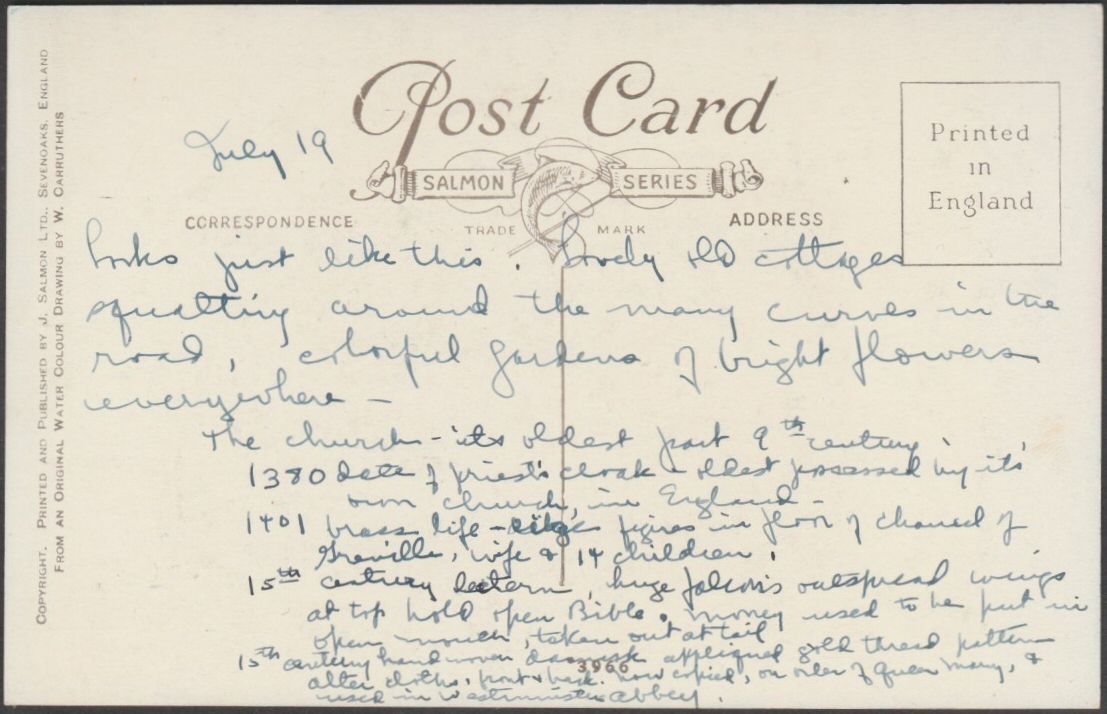 Post Card
SALMON SERIES
TRADE MARK
CORRESPONDENCE
ADDRESS
Printed
in
England
COPYRIGHT. PRINTED AND PUBLISHED BY J. SALMON LTD., SEVENOAKS, ENGLAND
FROM AN ORIGINAL WATER COLOUR DRAWING BY W. CARRUTHERS
July 19
Looks just like this. Lovely old cottages
squatting around the many curves in the
road, colorful gardens of bright flowers
everywhere -
The church - its oldest part 9th century
1380 date of priest's cloak - oldest possessed by it's
own church, in England -
1401 brass life - size figures in floor of chancel of
Greville, wife & 14 children.
15th century lectern, huge falcon's outspread wings
at top hold open Bible. Money used to be put in
open mouth, taken out at tail
15th century hand woven damask appliqued gold thread pattern
alter cloths, front & back. now copied, on order of Queen Mary, &
used in Westminster Abbey.
3966